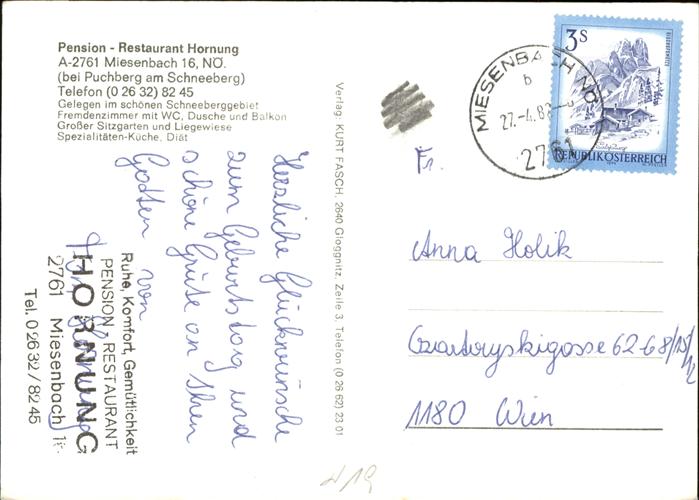 Pension - Restaurant Hornung
A-2761 Miesenbach 16, NÖ.
(bei Puchberg am Schneeberg)
Telefon (0 26 32) 82 45
Gelegen im schönen Schneeberggebiet
Fremdenzimmer mit WC, Dusche und Balkon
Großer Sitzgarten und Liegewiese
Spezialitäten-Küche, Diät
Herzliche Glückwünsche
zum Geburtstag und
schöne Grüße an Ihren
Gatten von
Ruhe, Komfort, Gemütlichkeit
PENSION, RESTAURANT
HORNUNG
2761 Miesenbach
Tel. 0 26 32 / 82 45
Verlag: KURT FASCH, 2640 Gloggnitz, Zeile 3, Telefon (0 26 62) 23 01
3 S
REPUBLIK ÖSTERREICH
MIESENBACH NÖ
b
27.-4.83
2761
Fr.
Anna Holik
Czartoryskigasse 62-68/15/12
1180 Wien